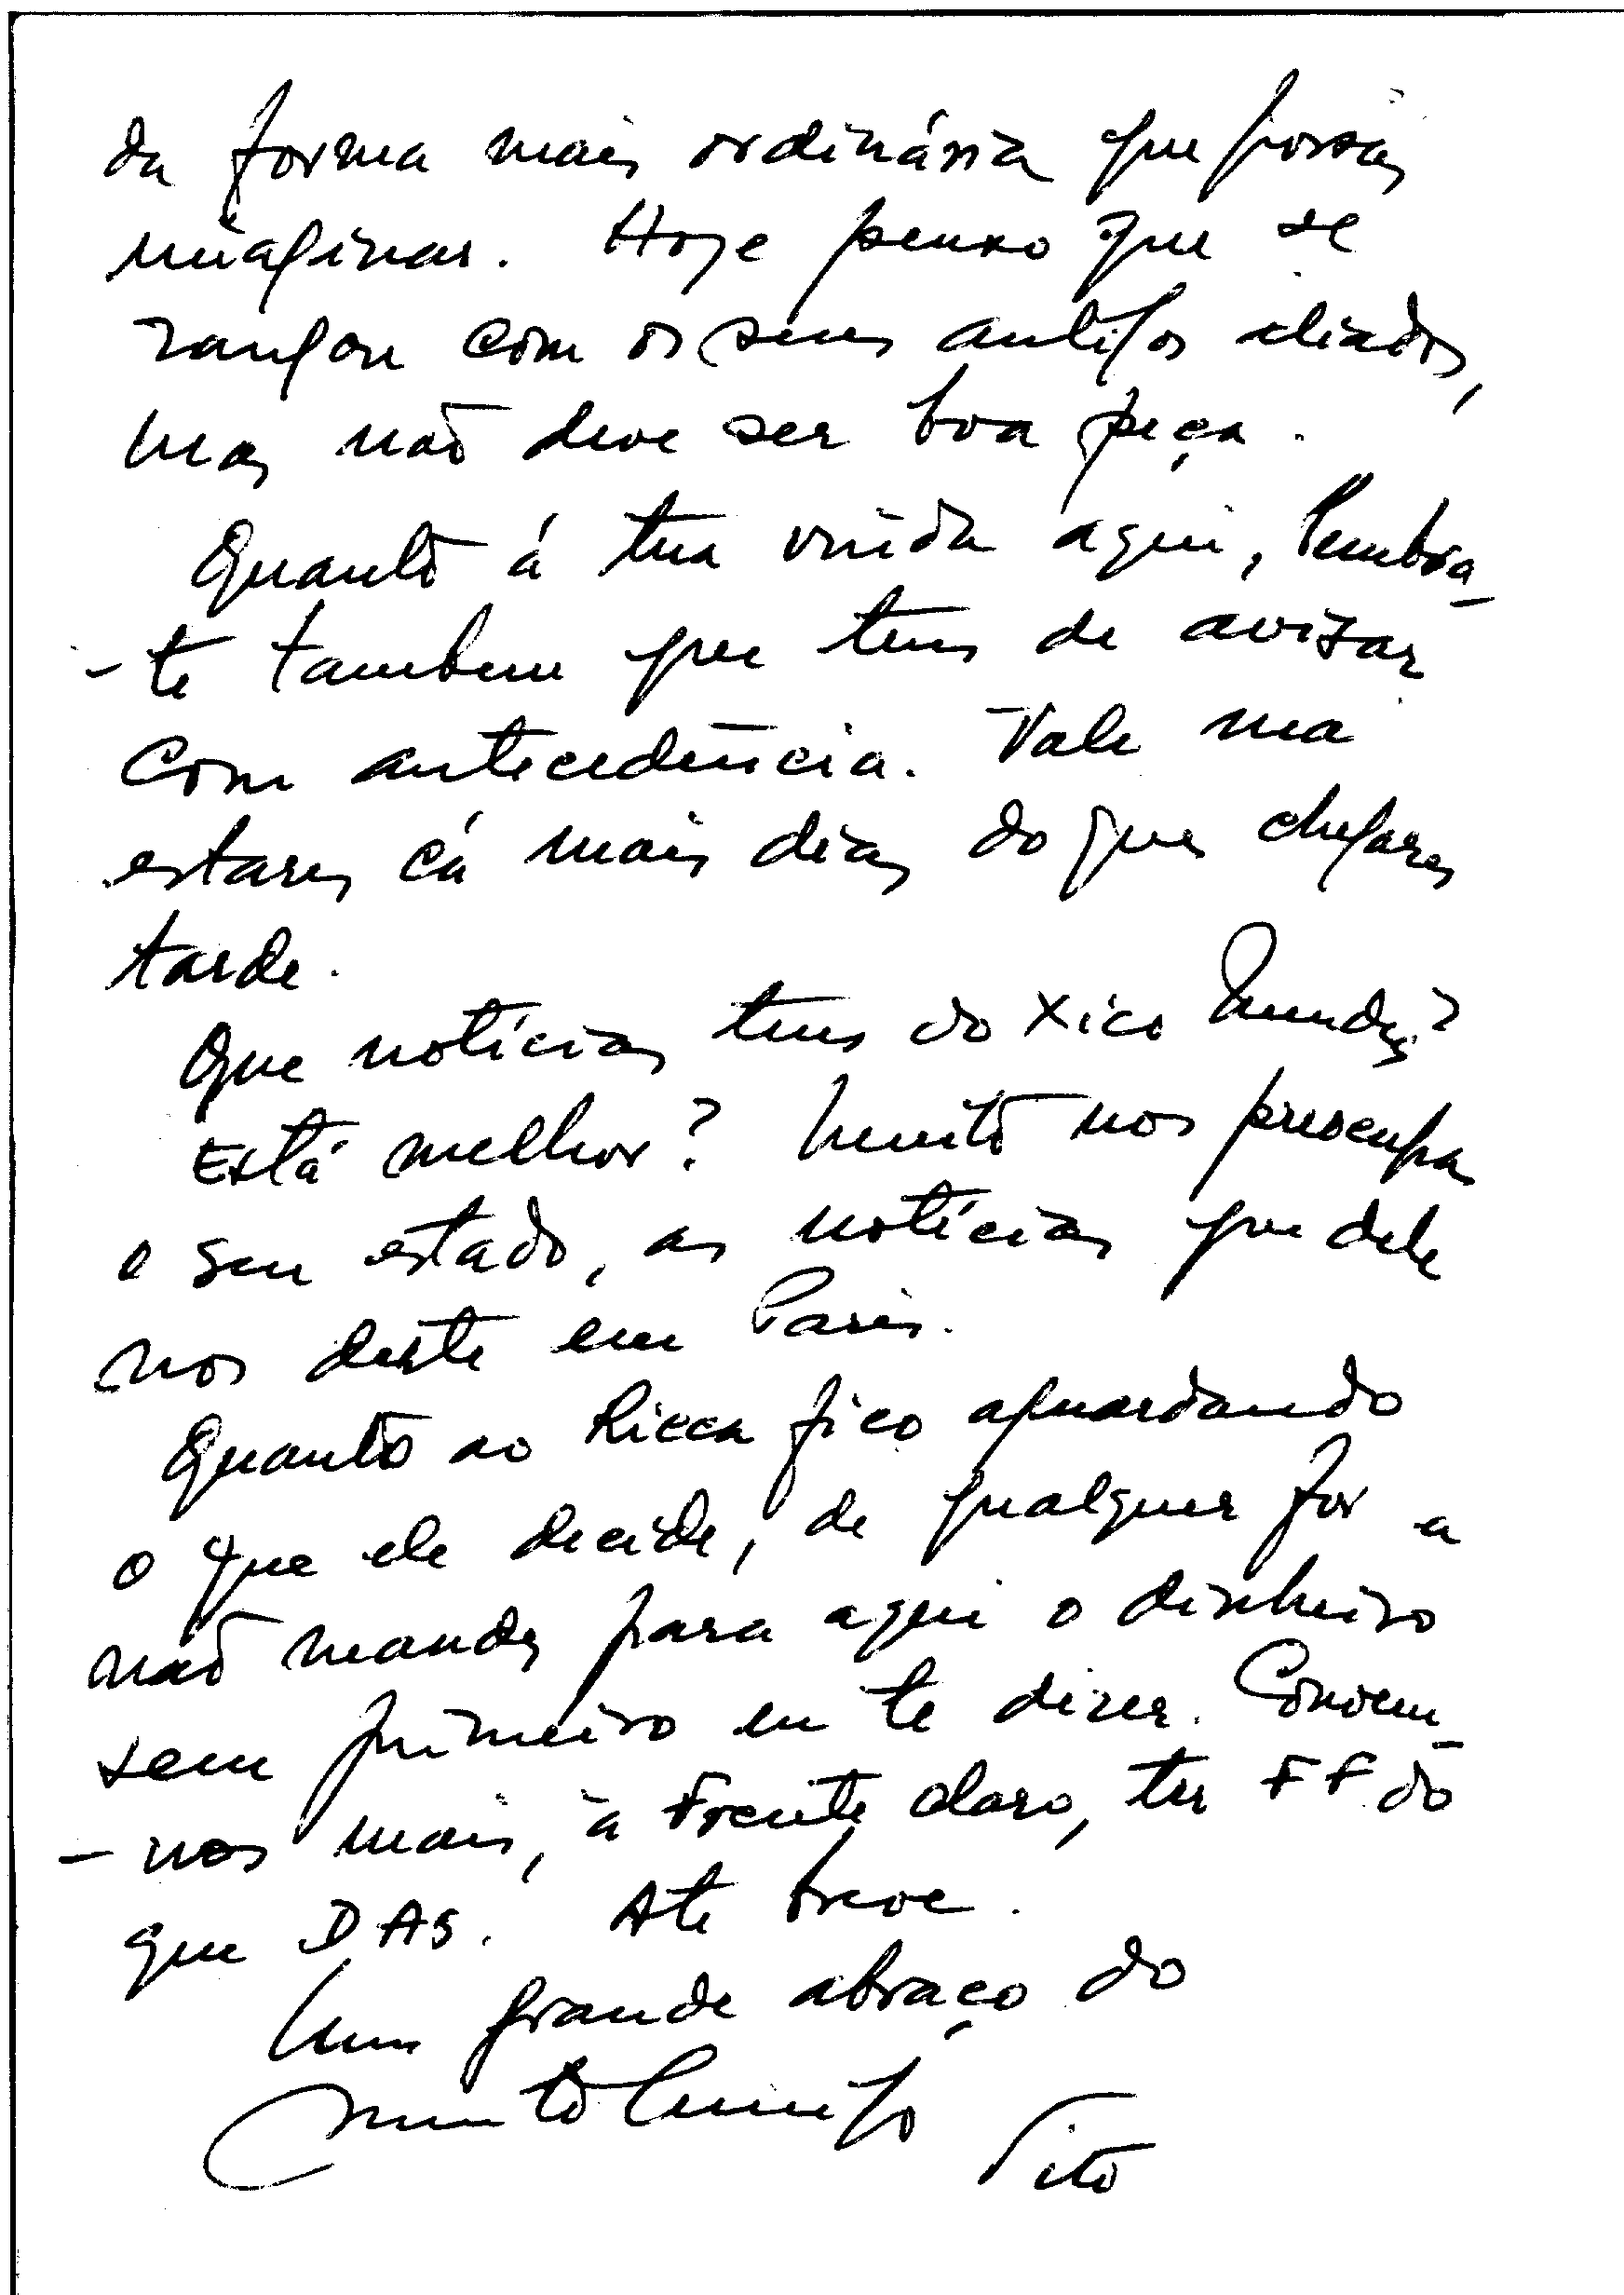 da forma mais ordinária que possas
imaginar. Hoje penso que se
zangou com os seus antigos aliados,
mas não deve ser boa peça.
Quanto á tua vinda aqui, lembra-
-te tambem que tens de avisar
com antecedência. Vale mais
estares cá mais dias do que chegares
tarde.
Que notícias tens do Xico Mendes?
Está melhor? Muito nos preocupa
o seu estado, as notícias que dele
nos deste em Paris.
Quanto ao Ricca fico aguardando
o que ele decide, de qualquer for a
não mandes para aqui o dinheiro
sem primeiro eu te dizer. Convem-
-nos mais, à Frente claro, ter FF do
que DAs. Ate breve.
Um grande abraço do
muito amigo
Tito